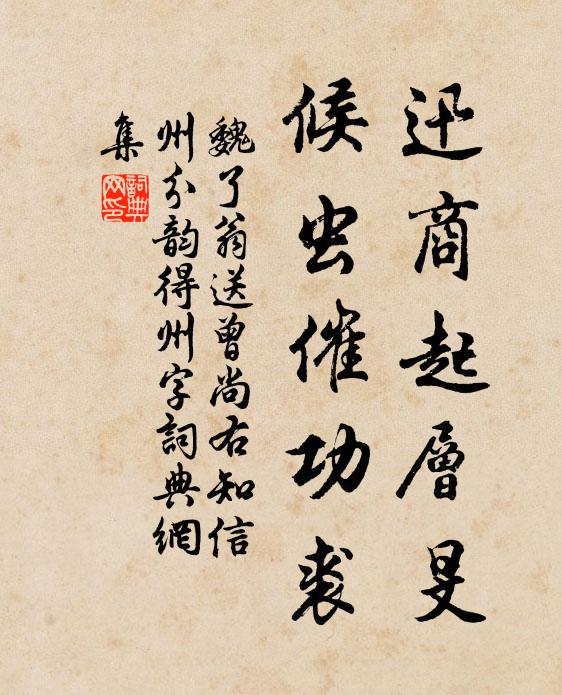 迅商起層旻
候虫催功裘
魏了翁送曾尚右知信
州分韵得州字詞典網
集
詞典
网印